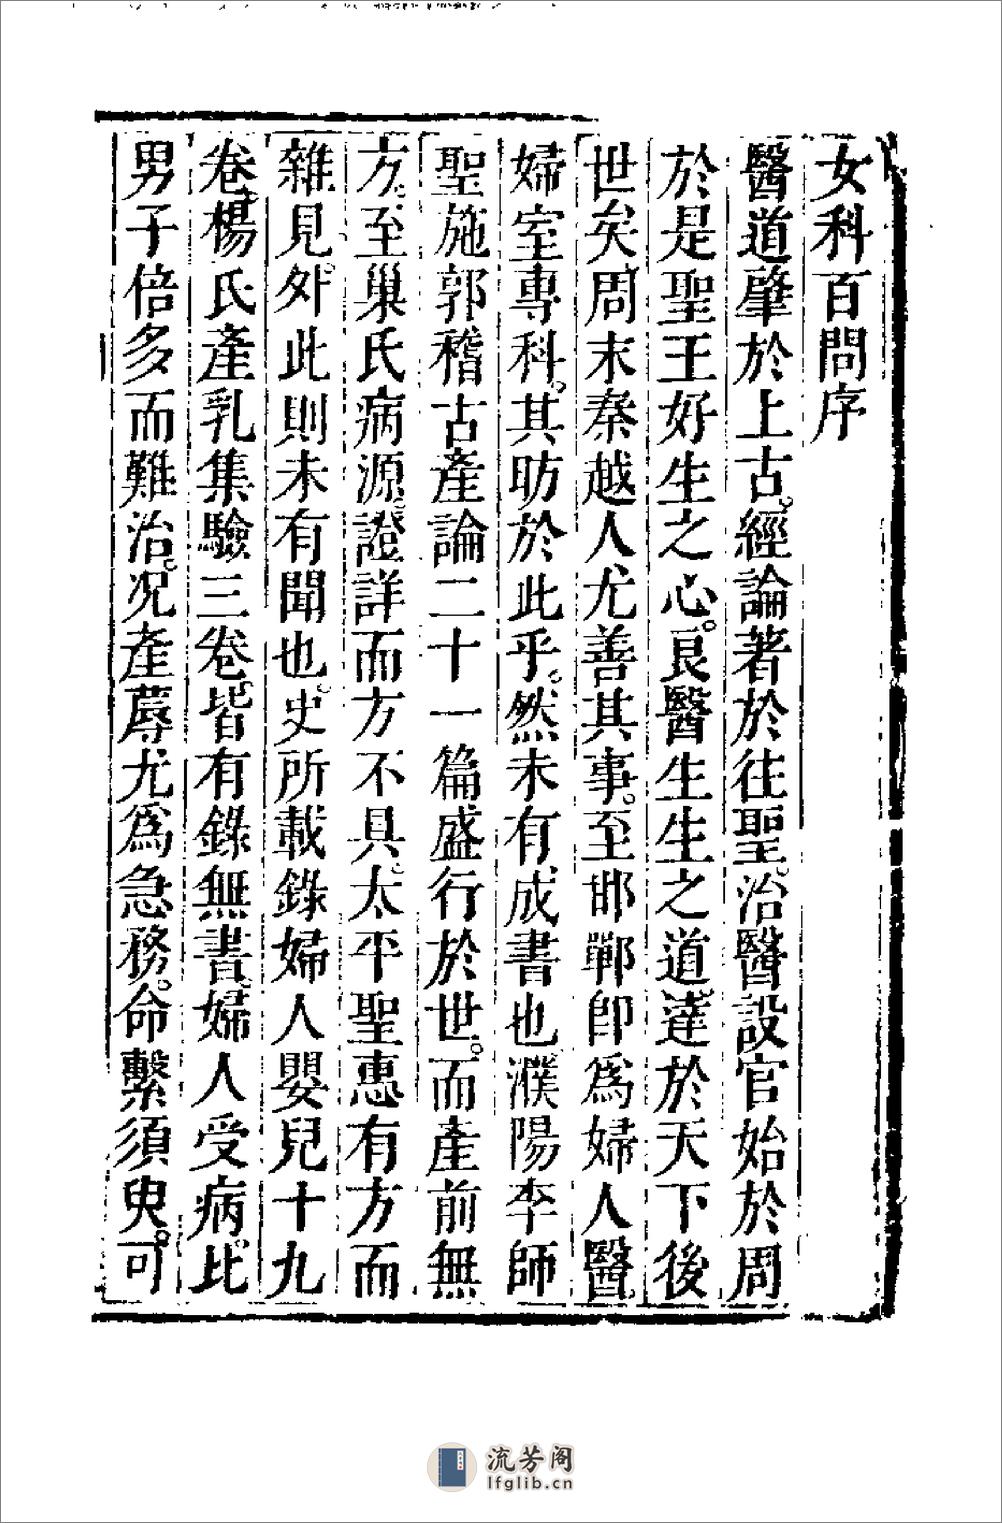 女科百問序
醫道肇於上古。經論著於往聖。治醫設官始於周
於是聖王好生之心。良醫生生之道。達於天下後
世矣周末秦越人尤善其事。至邯鄲即為婦人醫。
婦室專科。其昉於此乎。然未有成書也濮陽李師
聖施郭稽古產論二十一篇盛行於世。而產前無
方。至巢氏病源。證詳而方不具。太平聖惠有方而
雜見。外此則未有聞也。史所載錄婦人嬰兒十九
卷。楊氏產乳集驗三卷。皆有錄無書。婦人受病。比
男子倍多而難治。況產蓐尤為急務。命繫須臾。可
流芳阁
lfglib.cn